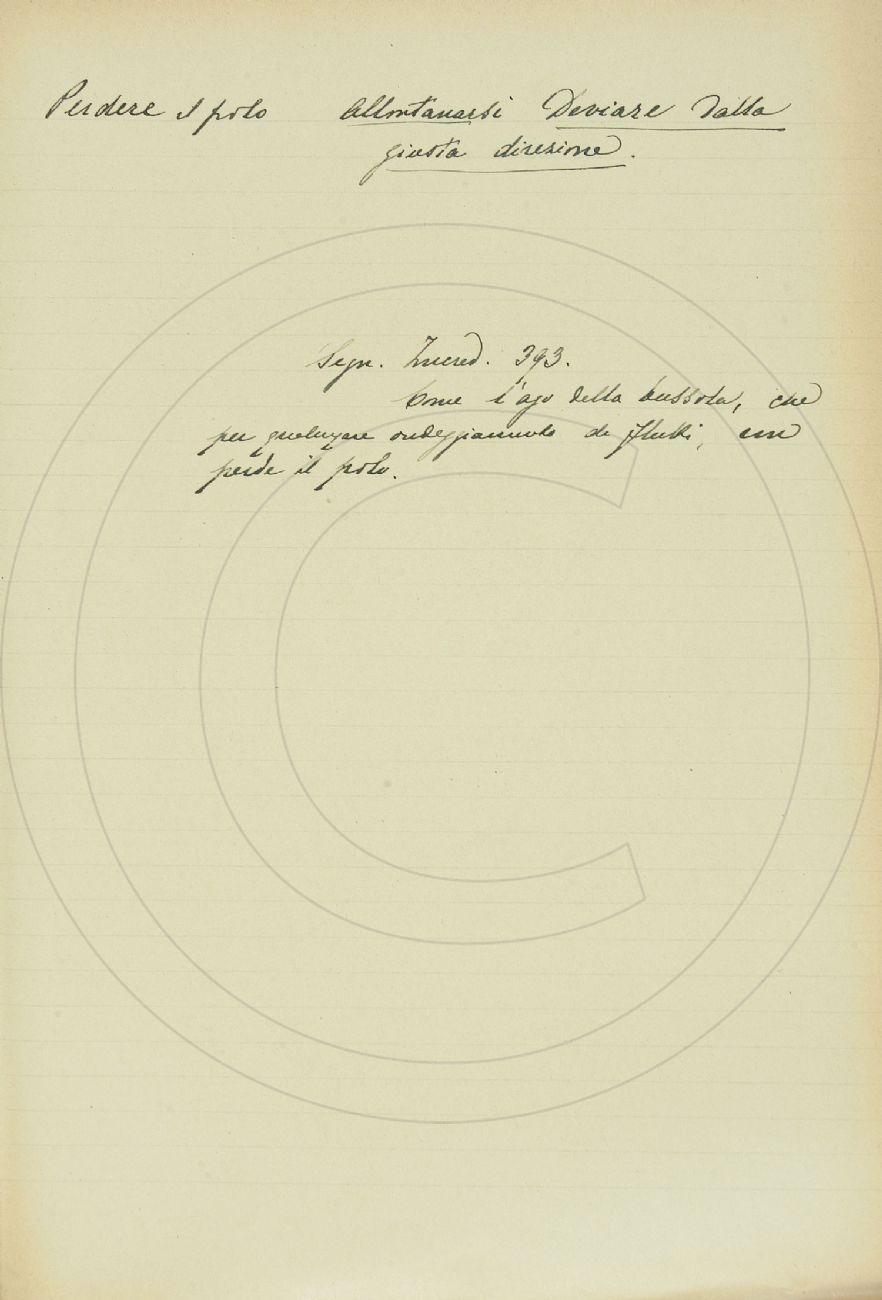 Perdere il polo Allontanarsi Deviare dalla
giusta direzione.
Segn. Incred. 393.
Come l'ago della bussola, che
per qualunque ondeggiamento de flutti, non
perde il polo.